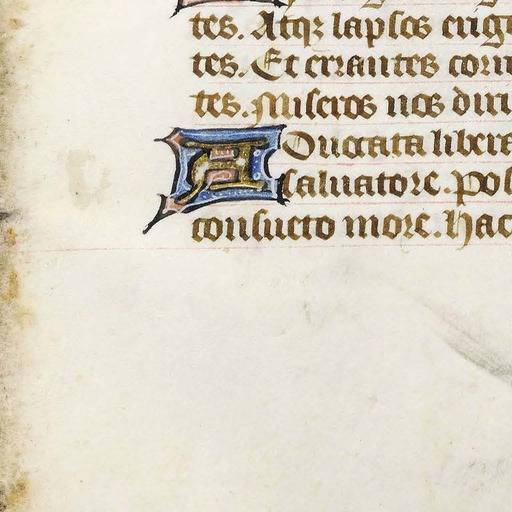 tes. Atqꝫ lapsos erig
tes. Et errantes corri
tes. Miseros nos diri
Aduocata libera
saluatore. Pos
consueto more. Hac